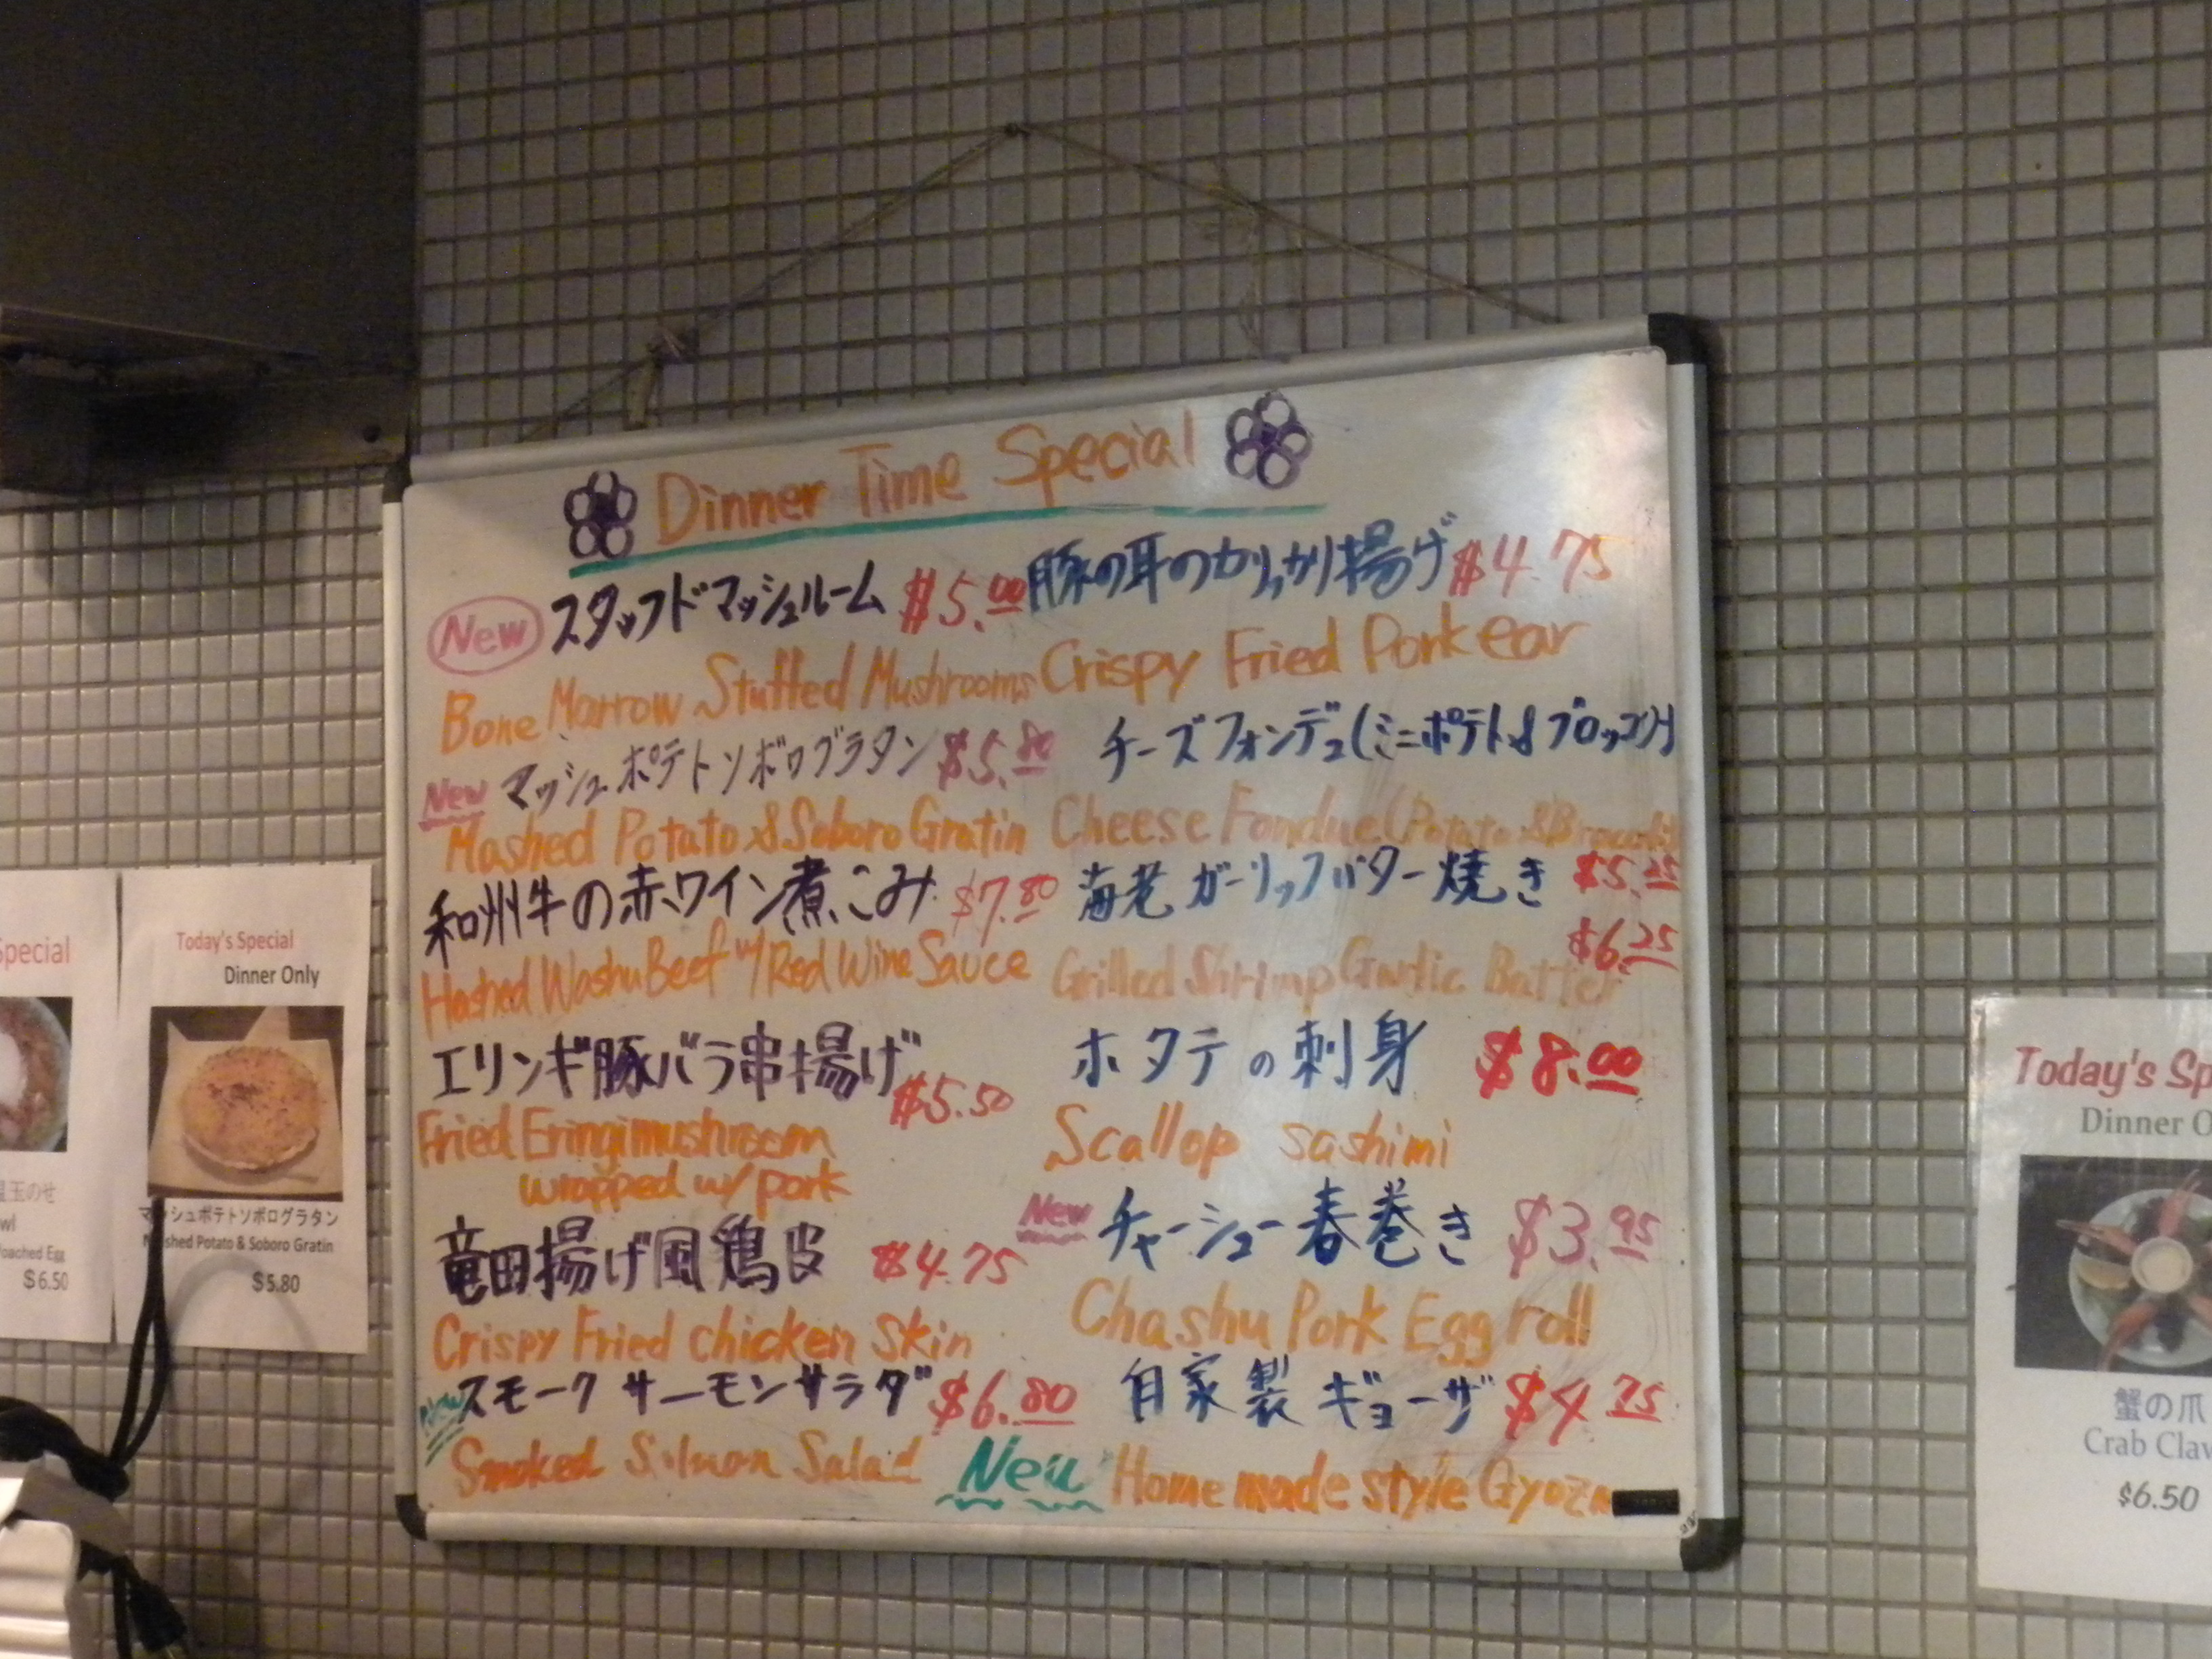 Dinner Time Special
New スタッフドマッシュルーム $5.00
Bone Marrow Stuffed Mushrooms
New マッシュポテトソボログラタン $5.80
Mashed Potato & Soboro Gratin
和州牛の赤ワイン煮こみ $7.80
Hashed Washu Beef w/ Red Wine Sauce
エリンギ豚バラ串揚げ
$5.50
Fried Eringi mushroom
wrapped w/ pork
竜田揚げ風鶏皮 $4.75
Crispy Fried chicken skin
New スモークサーモンサラダ $6.80
Smoked Salmon Salad
豚の耳のカリカリ揚げ $4.75
Crispy Fried Pork ear
チーズフォンデュ(ミニポテト&ブロッコリ)
Cheese Fondue (Potato & Broccoli)
$5.25
海老ガーリックバター焼き
$6.25
Grilled Shrimp Garlic Butter
ホタテの刺身 $8.00
Scallop sashimi
New チャーシュー春巻き $3.95
Chashu Pork Egg roll
自家製ギョーザ $4.75
New Home made style Gyoza
Special
玉のせ
wl
oached Egg
$6.50
Today's Special
Dinner Only
マッシュポテトソボログラタン
Mashed Potato & Soboro Gratin
$5.80
Today's Sp
Dinner O
蟹の爪
Crab Claw
$6.50